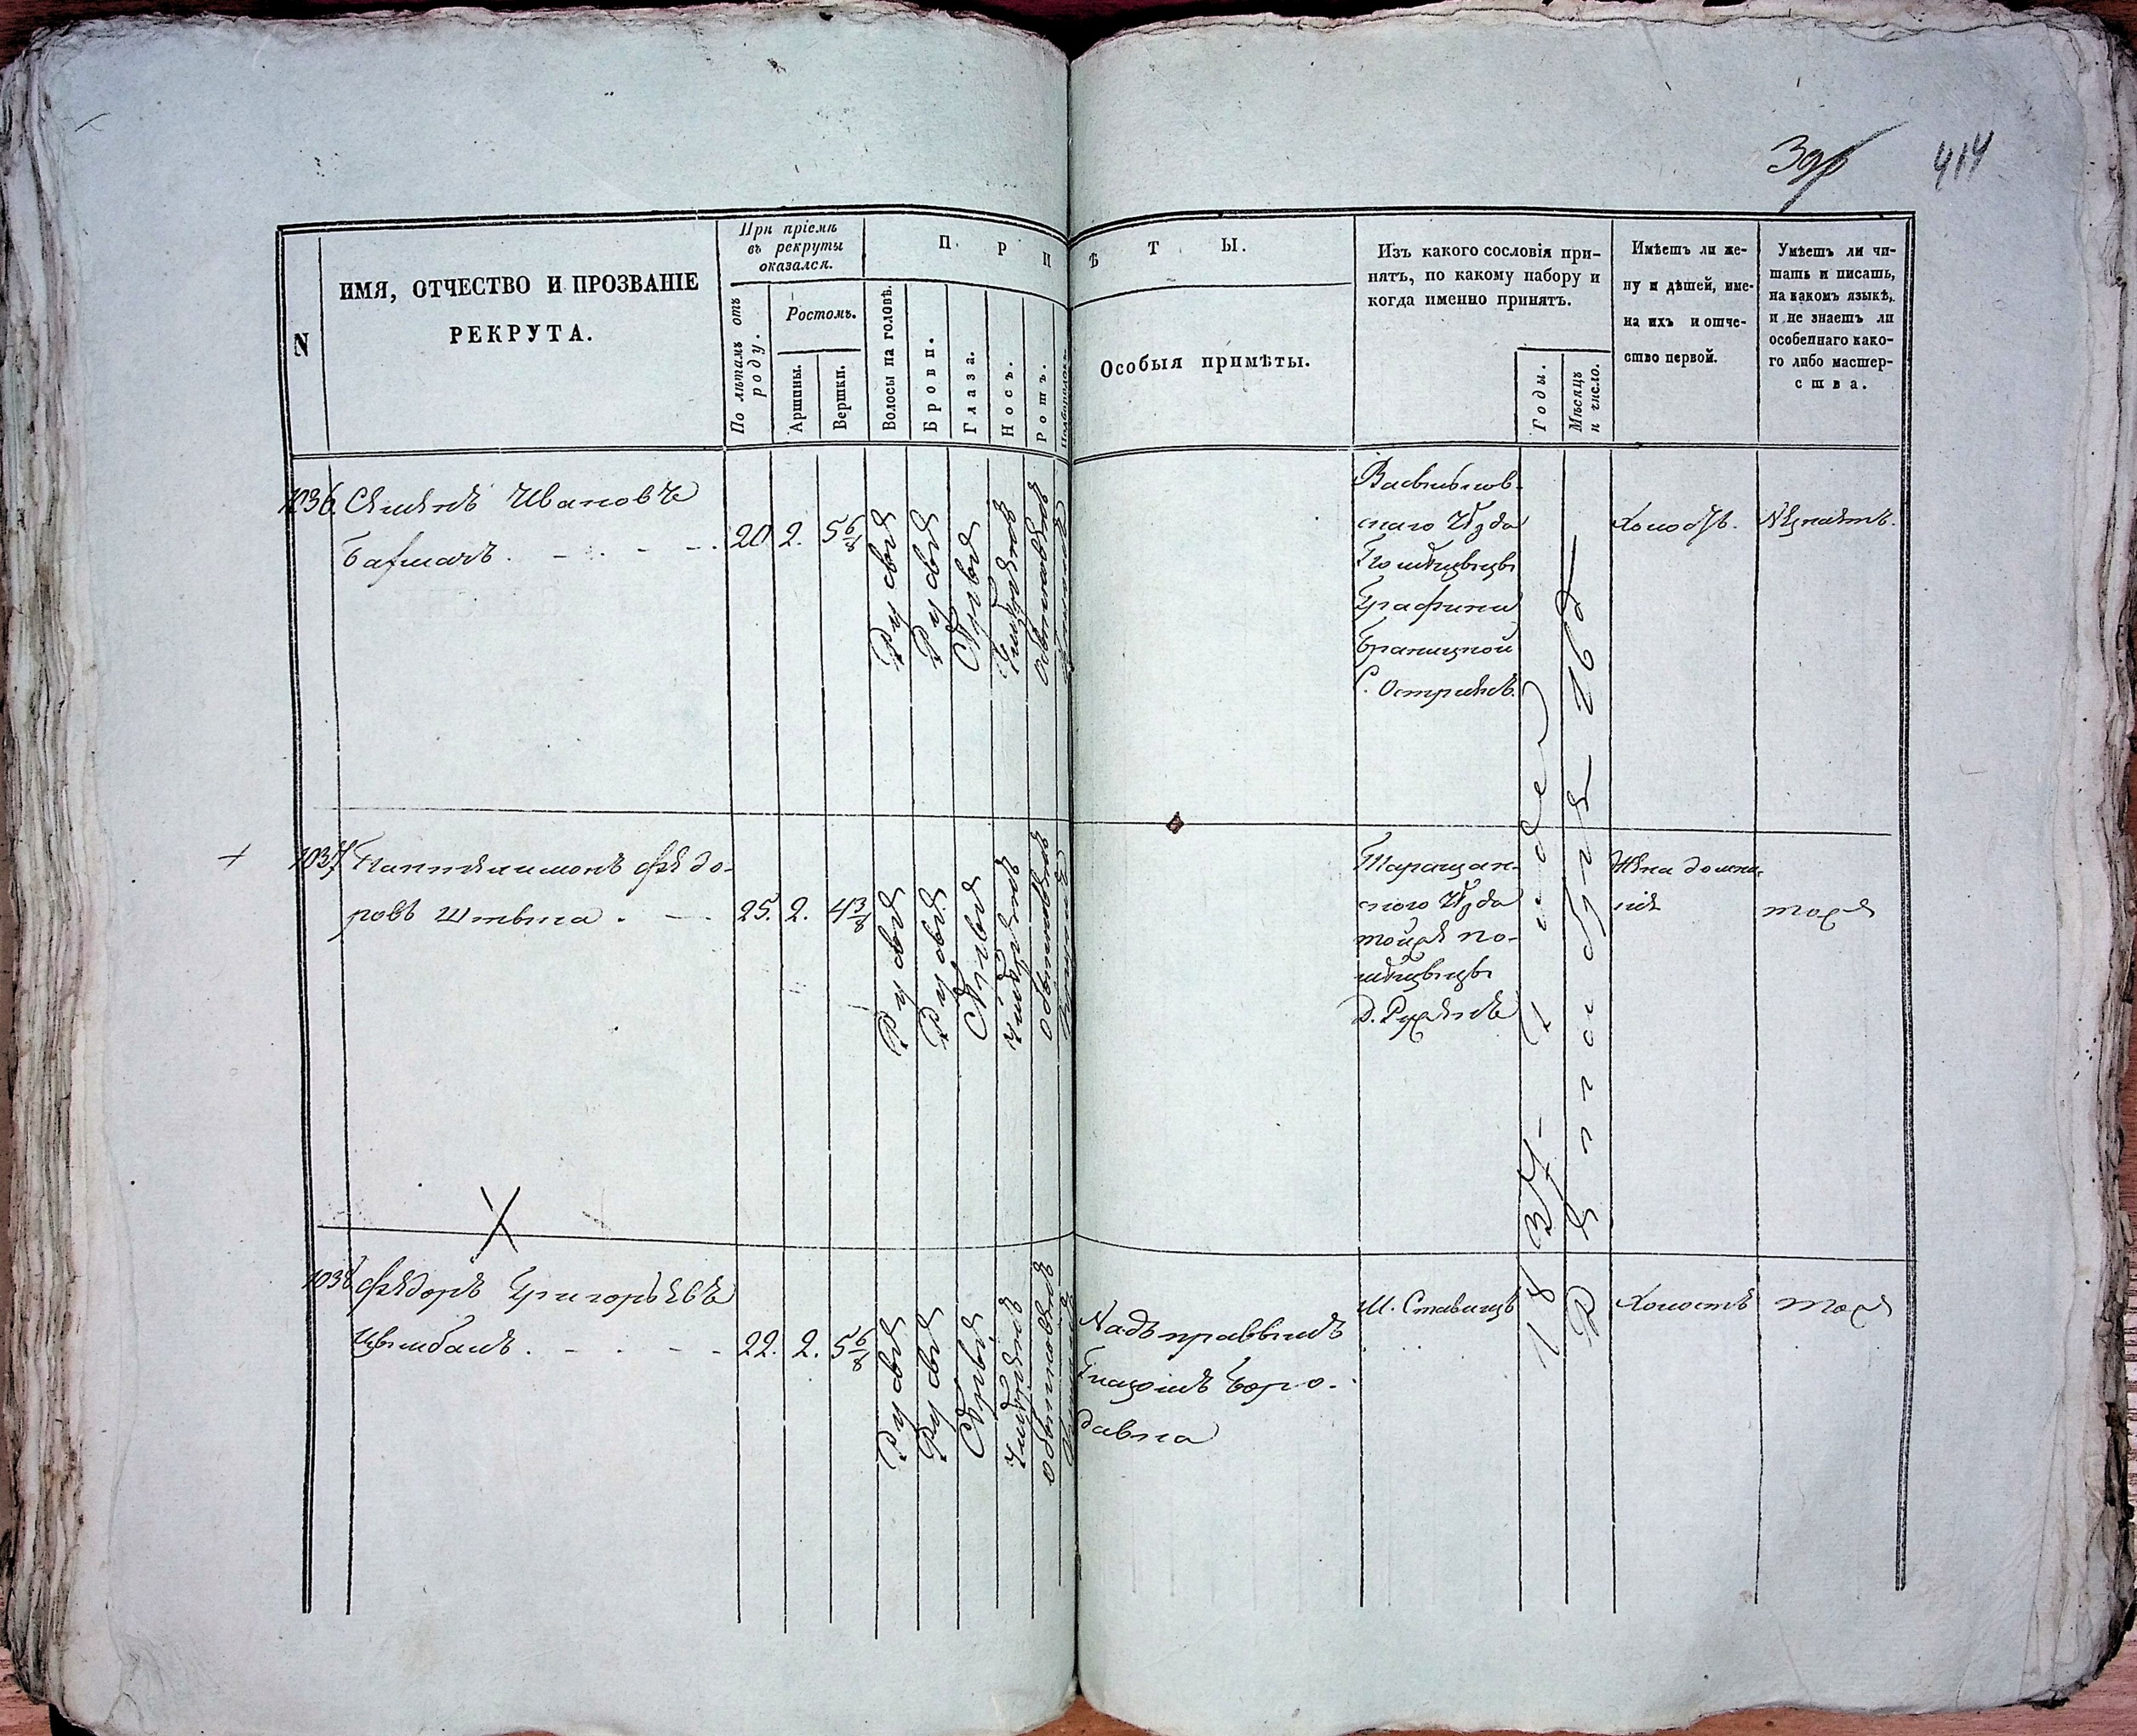 414
N
ИМЯ, ОТЧЕСТВО И ПРОЗВАНІЕ
РЕКРУТА.
При пріемѣ
въ рекруты
оказался.
По лѣтамъ отъ
роду.
Ростомъ.
Аршины.
Вершки.
П Р И
Волосы на головѣ.
Брови.
Глаза.
Носъ.
Ротъ.
Подбородокъ
Ѣ Т Ы.
Особыя примѣты.
Изъ какого сословія при-
нятъ, по какому набору и
когда именно принятъ.
Годы.
Мѣсяцъ
и число.
Имѣетъ ли же-
ну и дѣтей, име-
на ихъ и отче-
ство первой.
Умѣетъ ли чи-
тать и писать,
на какомъ языкѣ,
и не знаетъ ли
особеннаго како-
го либо мастер-
ства.
1036. Семенъ Ивановъ
20. 2. 5 6/8
Русые
Русые
Сѣрые
Умѣренъ
обыкновенъ
Васильков-
скаго Уѣзда
Помѣщицы
Графини
Браницкой
С. Острики
Холостъ.
1037 Пантелимонъ Федо-
ровъ
25. 2. 4 3/8
Русые
Русые
Сѣрые
Умѣренъ
обыкновенъ
Таращан-
скаго Уѣзда
тойже по-
мѣщицы
Жена
тоже
1038 Федоръ Григорьевъ
Цымбалъ
22. 2. 5 6/8
Русые
Русые
Сѣрые
Умѣренъ
обыкновенъ
Надъ правымъ
глазомъ боро-
давка
М. Ставищъ
Холостъ
тоже
1834 года
Декабря 16е